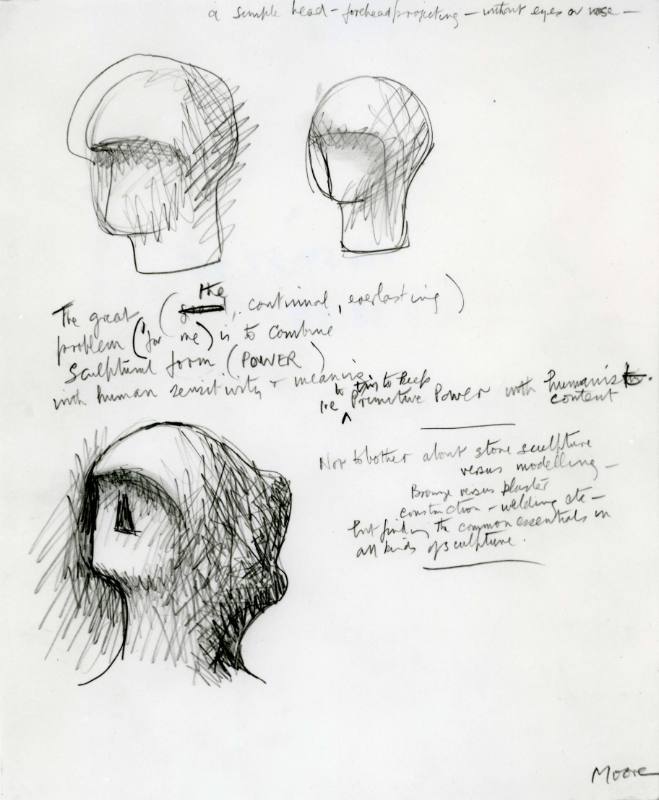 a simple head – forehead projecting – without eyes or nose –
The great ( the , continual, everlasting )
problem (for me) is to combine
Sculptural form (POWER)
with human sensitivity & meaning
i.e to try to keep Primitive Power with humanist
content
Not to bother about stone sculpture
versus modelling –
Bronze versus plaster
construction – welding etc –
but finding the common essentials in
all kinds of sculpture.
Moore